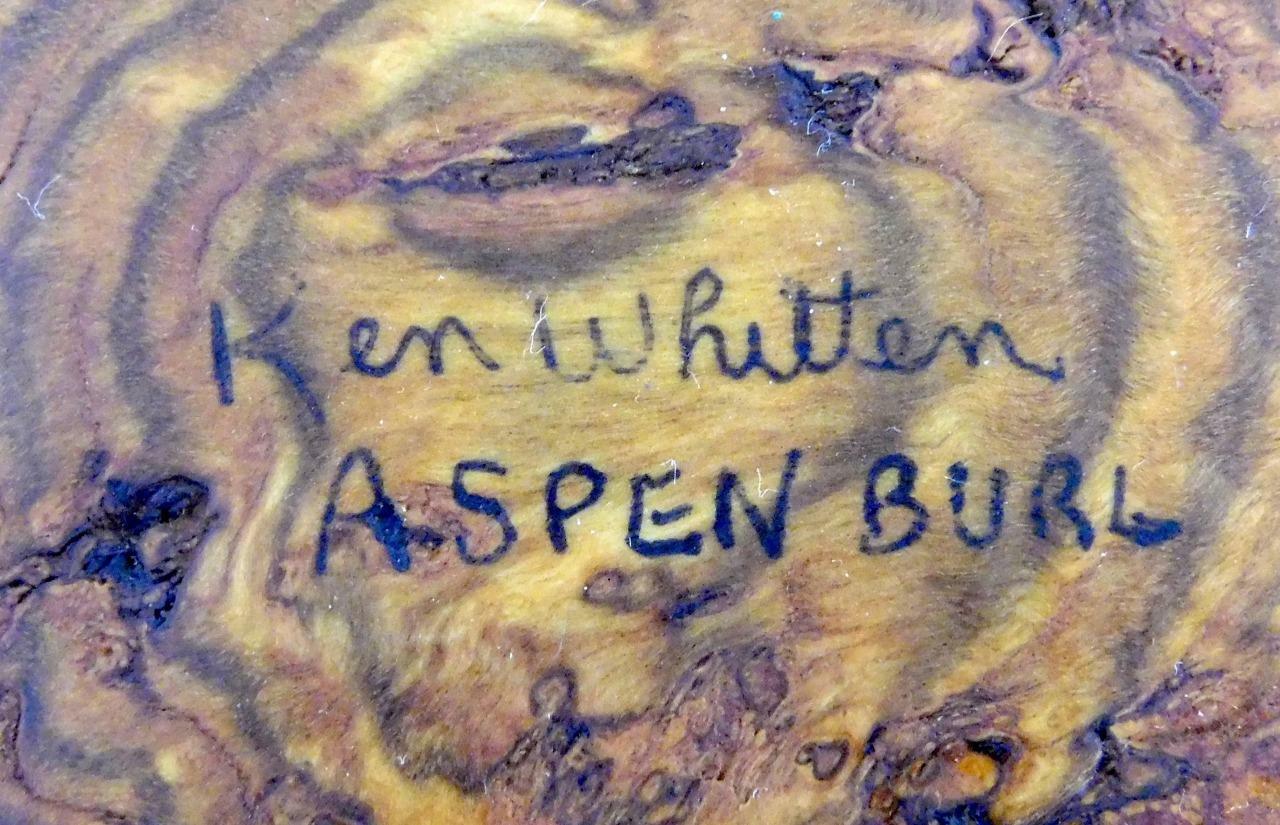 Ken Whitten
ASPEN BURL